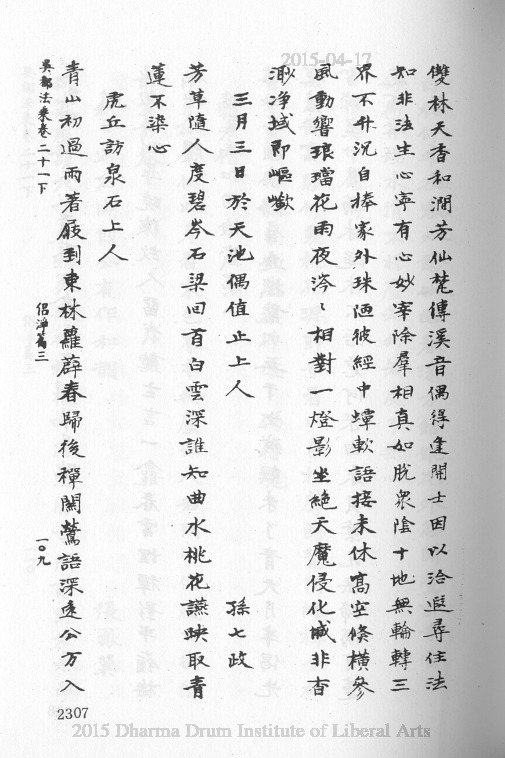 2015-04-17
雙林天香和澗芳仙梵傳溪音偶得逢開士因以洽遐尋住法
知非法生心寧有心妙宰除羣相真如脫眾陰十地無輪轉三
界不升沉自捧家外珠迺彼經中蟬軟語接未休高空倏橫參
風動響琅璫花雨夜涔〻相對一燈影坐絕天魔侵化城非杳
渺淨域即嶇嶔
三月三日於天池偶值止上人 孫七政
芳草隨人度碧岑石梁回首白雲深誰知曲水桃花讌映取青
蓮不染心
虎丘訪泉石上人
青山初過雨著屐到東林蘿薜春歸後禪關鶯語深遠公方入
吳都法乘卷二十一下 侶淨篇三 一〇九
2307
2015 Dharma Drum Institute of Liberal Arts